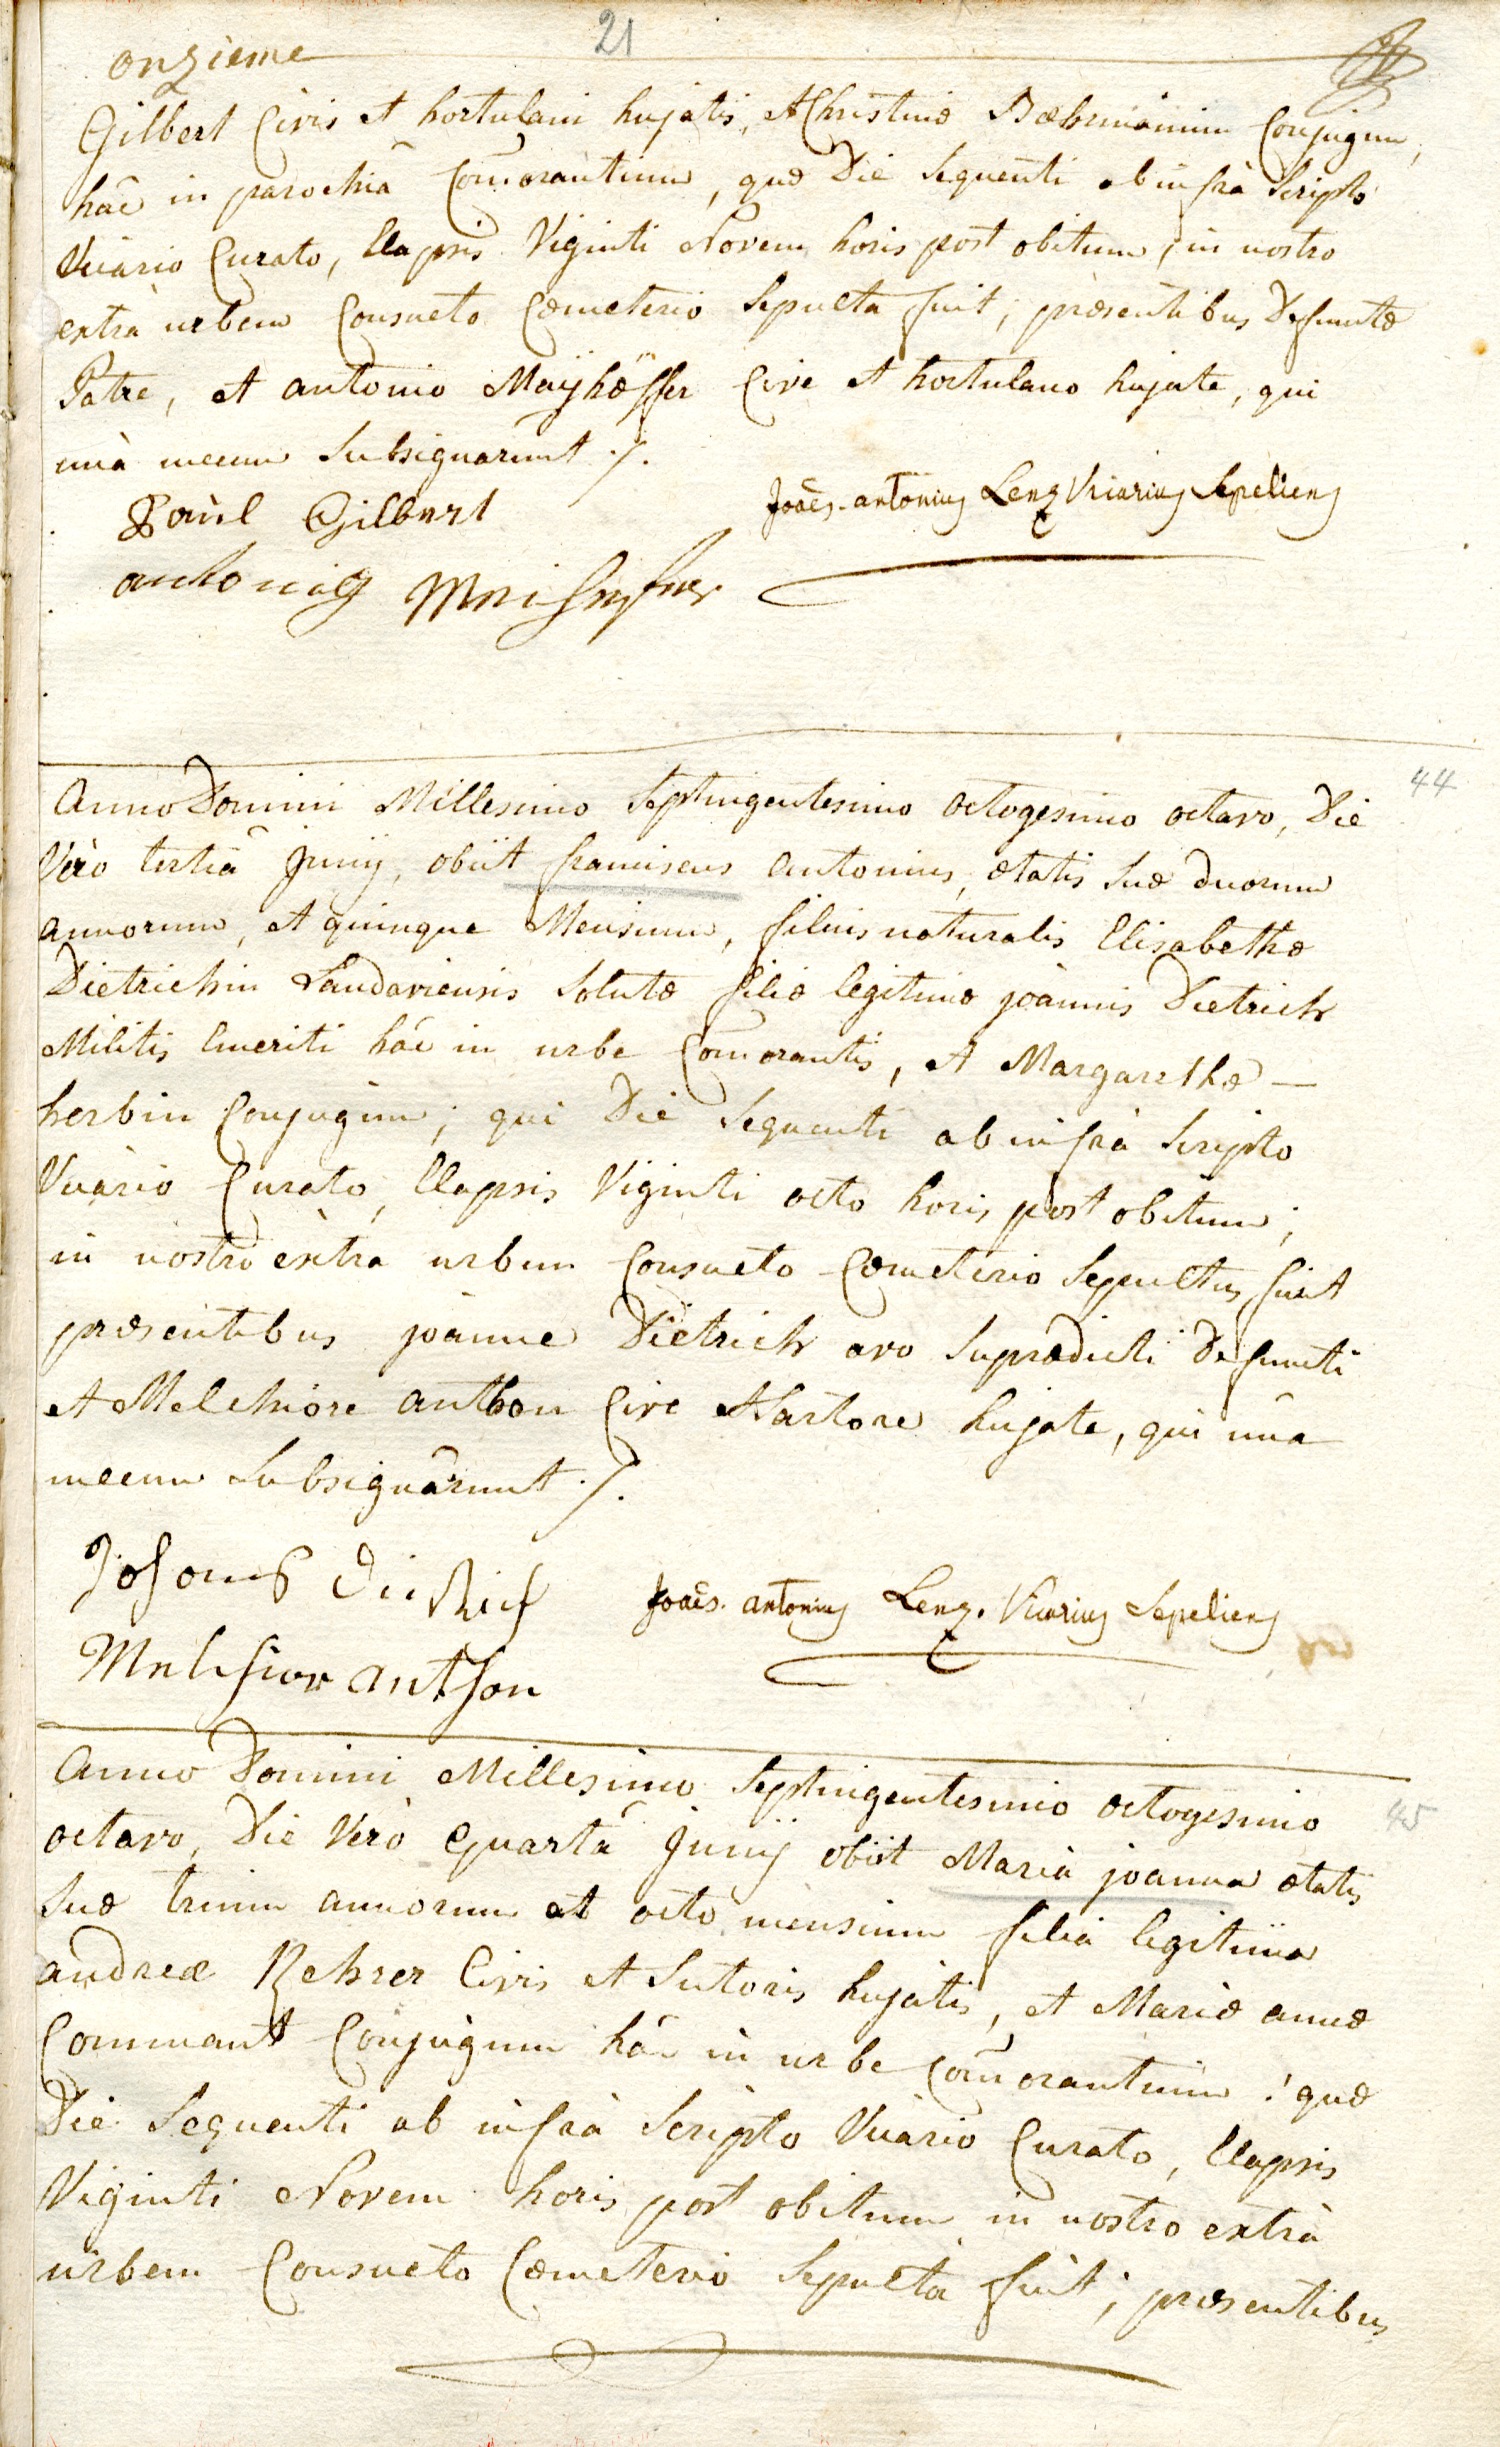 21
onzieme
Gilbert Civis et hortulani hujatis, et Christinæ Bæhrmännin Conjugum,
hâc in parochiâ Com̄orantium, quæ Die Sequenti ab infrà Scripto
Vicario Curato, Elapsis Viginti Novem horis post obitum, in nostro
extrà urbem Consueto Cœmeterio Sepulta fuit, præsentibus Defunctæ
Patre, et antonio Maÿhöffer Cive et hortulano hujate, qui
unà mecum Subsignarunt ./.
Paùl Gilbert
Joaēs. antonius Lenz Vicarius Sepeliens
antonius
Anno Domini Millesimo Septingentesimo octogesimo octavo, Die 44
Verò tertiâ Junij, obiit franciscus antonius, ætatis Suæ duorum
annorum, et quinque Mensium, filius naturalis Elisabethæ
Dietrichin Landaviensis Solutæ filiæ legitimæ joànnis Dietrich
Militis Emeriti hâc in urbe Com̄orantis, et Margarethæ —
herbin Conjugum; qui Die Sequenti ab infrà Scripto
Vicario Curato, Elapsis Viginti octo horis post obitum,
in nostro extrà urbem Consueto Cœmeterio Sepultus fuit
præsentibus joànne Dietrich avo Suprædicti Defuncti
et Melchiore anthon Cive et Sartore hujate, qui unà
mecum Subsignârunt ./.
Johanes Dietrich
Joaēs. antonius Lenz. Vicarius Sepeliens
Melchior anthon
Anno Domini Millesimo Septingentesimo octogesimo
octavo, Die Verò Quartâ Junij obiit Maria joanna ætatis 45
Suæ trium annorum et octo mensium filia legitima
andreæ Rehrer Civis et Sutoris hujatis, et Mariæ annæ
Command Conjugum hâc in urbe Com̄orantium; quæ
Die Sequenti ab infrà Scripto Vicario Curato, Elapsis
Viginti Novem horis post obitum in nostro extrà
urbem Consueto Cœmeterio Sepulta fuit; præsentibus